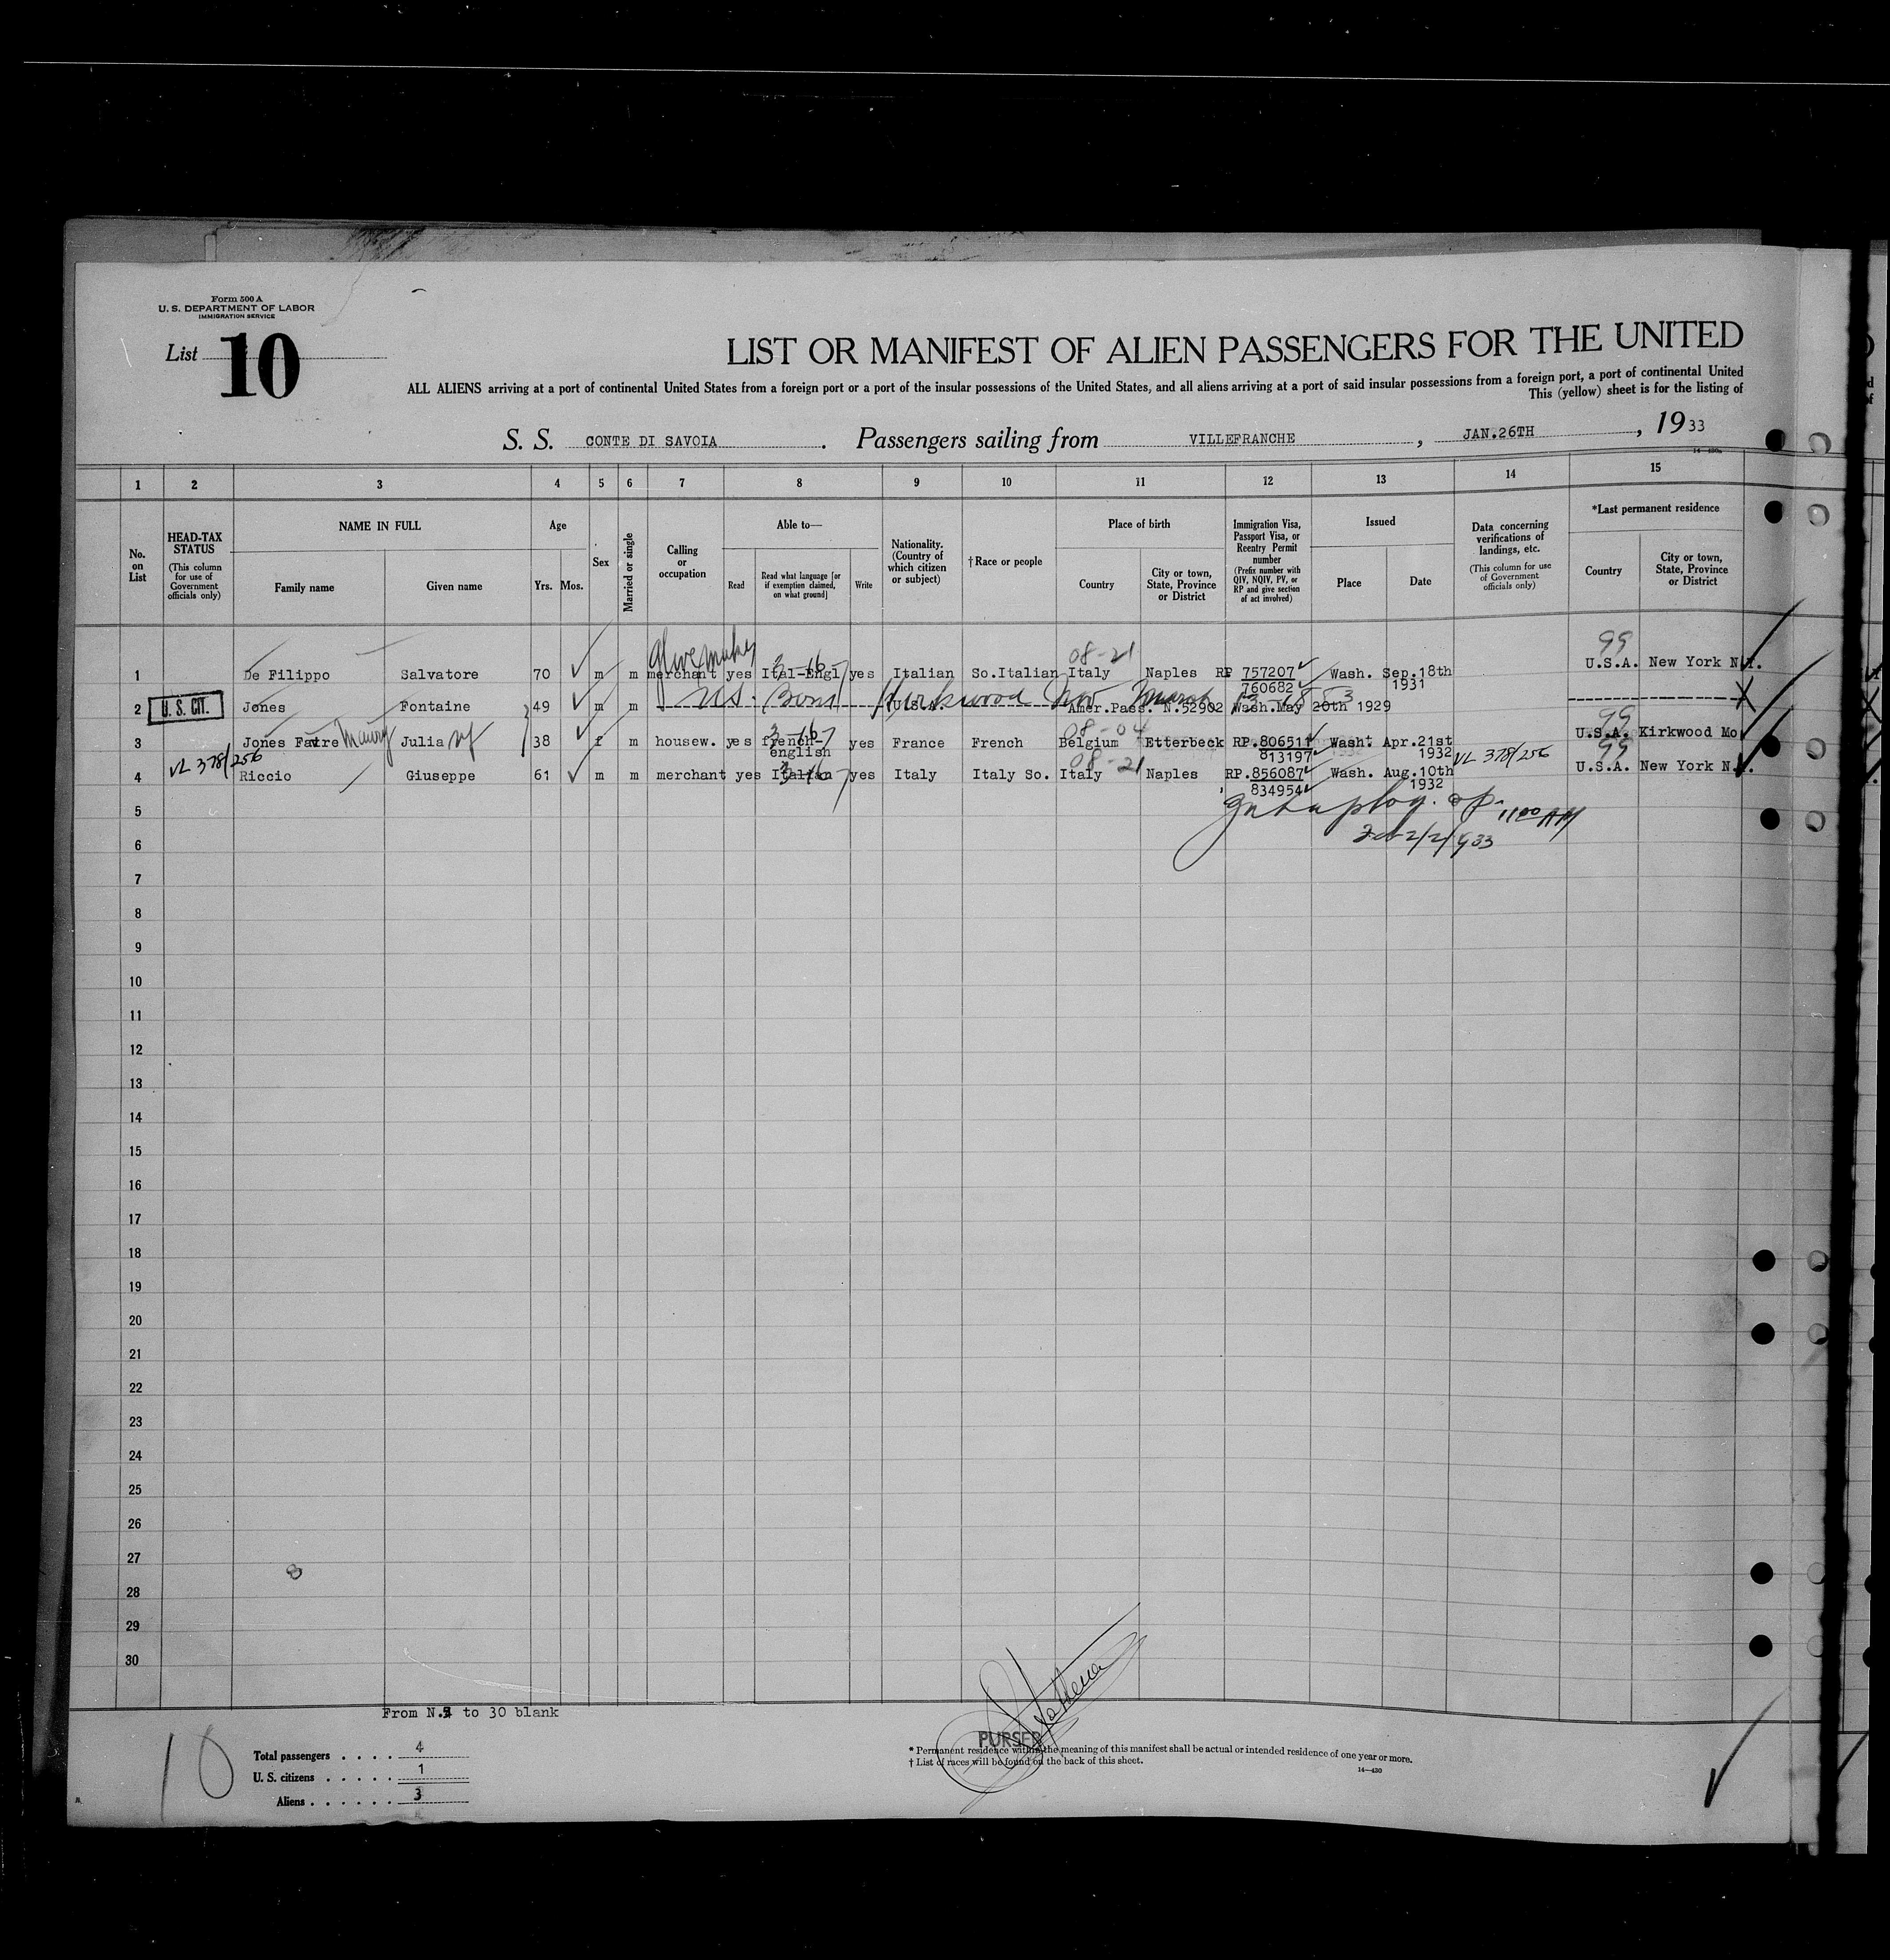 Form 500 A
U. S. DEPARTMENT OF LABOR
IMMIGRATION SERVICE
List 10
LIST OR MANIFEST OF ALIEN PASSENGERS FOR THE UNITED
ALL ALIENS arriving at a port of continental United States from a foreign port or a port of the insular possessions of the United States, and all aliens arriving at a port of said insular possessions from a foreign port, a port of continental United
This (yellow) sheet is for the listing of
S. S. CONTE DI SAVOIA. Passengers sailing from VILLEFRANCHE, JAN.26TH, 1933
14—430a
1 2 3 4 5 6 7 8 9 10 11 12 13 14 15
No. on List
HEAD-TAX STATUS (This column for use of Government officials only)
NAME IN FULL
Family name
Given name
Age
Yrs. Mos.
Sex
Married or single
Calling or occupation
Able to—
Read
Read what language [or if exemption claimed, on what ground]
Write
Nationality. (Country of which citizen or subject)
†Race or people
Place of birth
Country
City or town, State, Province or District
Immigration Visa, Passport Visa, or Reentry Permit number (Prefix number with QIV, NQIV, PV, or RP and give section of act involved)
Issued
Place
Date
Data concerning verifications of landings, etc. (This column for use of Government officials only)
*Last permanent residence
Country
City or town, State, Province or District
Glovemaker 08-21 99
1 De Filippo Salvatore 70 m m merchant yes Ital-Engl yes Italian So.Italian Italy Naples RP 757207 Wash. Sep.18th U.S.A. New York N.Y.
760682 1931
2 U. S. CIT. Jones Fontaine 49 m m U.S. Born Kirkwood U.S.A. Amer.Pass. N.52902 Wash.May 20th 1929
08-04 99
3 Jones Favre Maury Julia 38 f m housew. yes french- yes France French Belgium Etterbeck RP.806511 Wash. Apr.21st U.S.A. Kirkwood Mo
english 813197 1932
VL 378/256 08-21 VL 378/256 99
4 Riccio Giuseppe 61 m m merchant yes Italian yes Italy Italy So. Italy Naples RP.856087 Wash. Aug.10th U.S.A. New York N.Y.
834954 1932
5 11 00 AM
6 Feb 2/2/1933
7
8
9
10
11
12
13
14
15
16
17
18
19
20
21
22
23
24
25
26
27
28
29
30
From N.5 to 30 blank
10
Total passengers . . . . 4
U. S. citizens . . . . . 1
Aliens . . . . . . 3
PURSER
* Permanent residence within the meaning of this manifest shall be actual or intended residence of one year or more.
† List of races will be found on the back of this sheet.
14—430